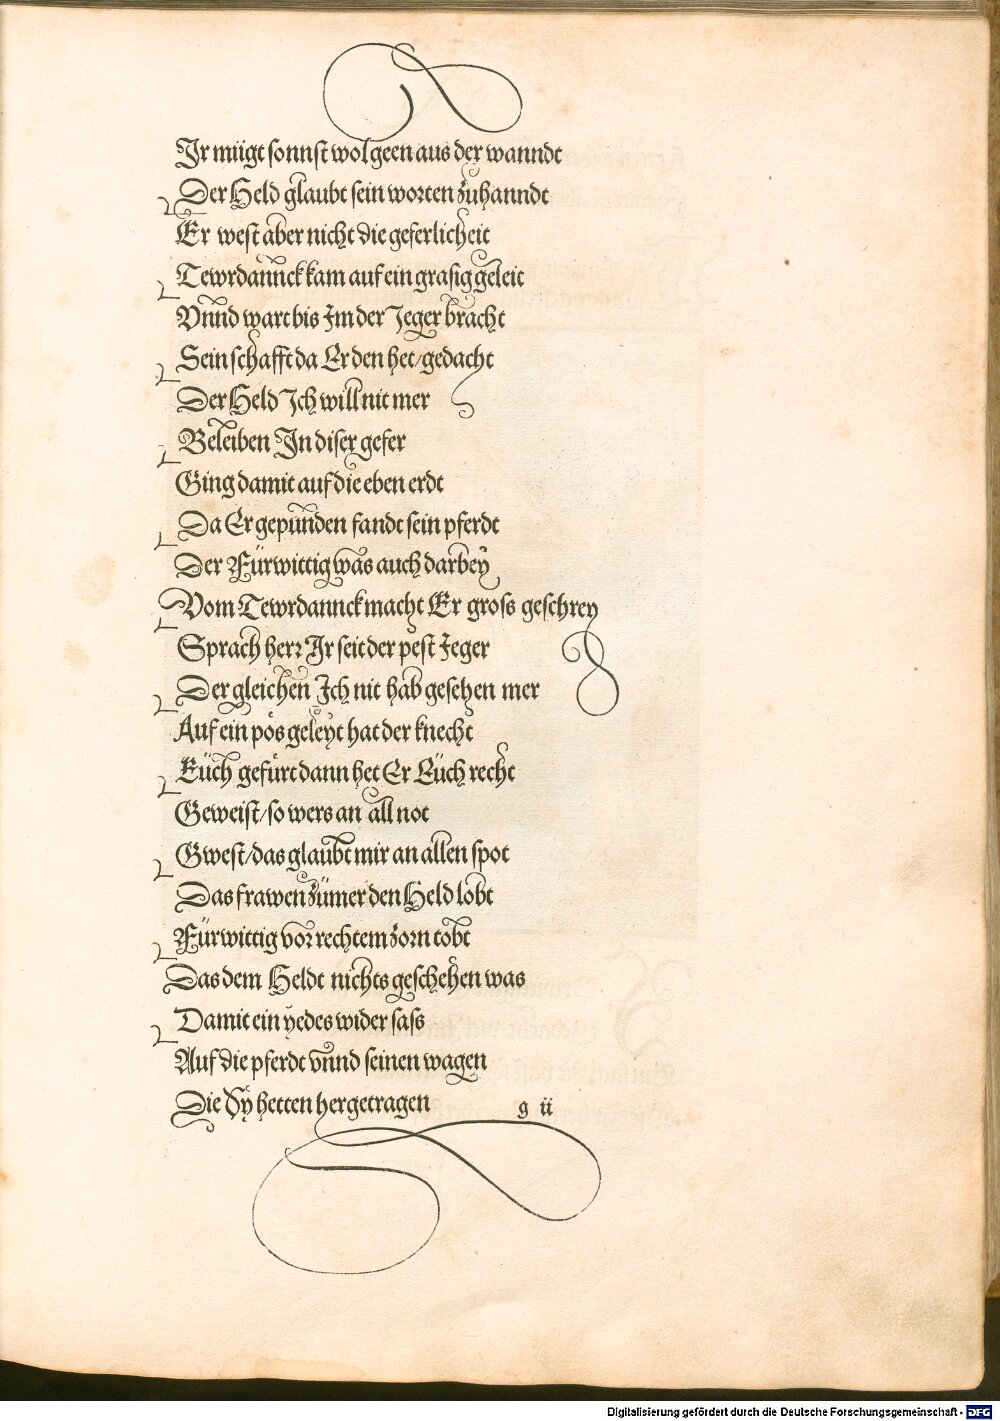 Ir mügt sonnst wol geen aus der wanndt
Der Held glaubt sein worten zuhanndt
Er west aber nicht die geferlicheit
Tewrdannck kam auf ein grasig geleit
Vnnd wart bis Im der Jeger bracht
Sein schafft da Er den het/gedacht
Der Held Ich will nit mer
Beleiben In diser gefer
Ging damit auf die eben erdt
Da Er gepunden fandt sein pferdt
Der Fürwittig was auch darbey
Vom Tewrdannck macht Er gross geschrey
Sprach herr Ir seit der pest Jeger
Der gleichen Ich nit hab gesehen mer
Auf ein pös geleyt hat der knecht
Eüch gefürt dann het Er Eüch recht
Geweist/so wers an all not
Gwest/das glaubt mir an allen spot
Das frawen zümer den Held lobt
Fürwittig vor rechtem zorn tobt
Das dem Heldt nichts geschehen was
Damit ein yedes wider sass
Auf die pferdt vnnd seinen wagen
Die Sy hetten hergetragen
g ii
Digitalisierung gefördert durch die Deutsche Forschungsgemeinschaft - DFG